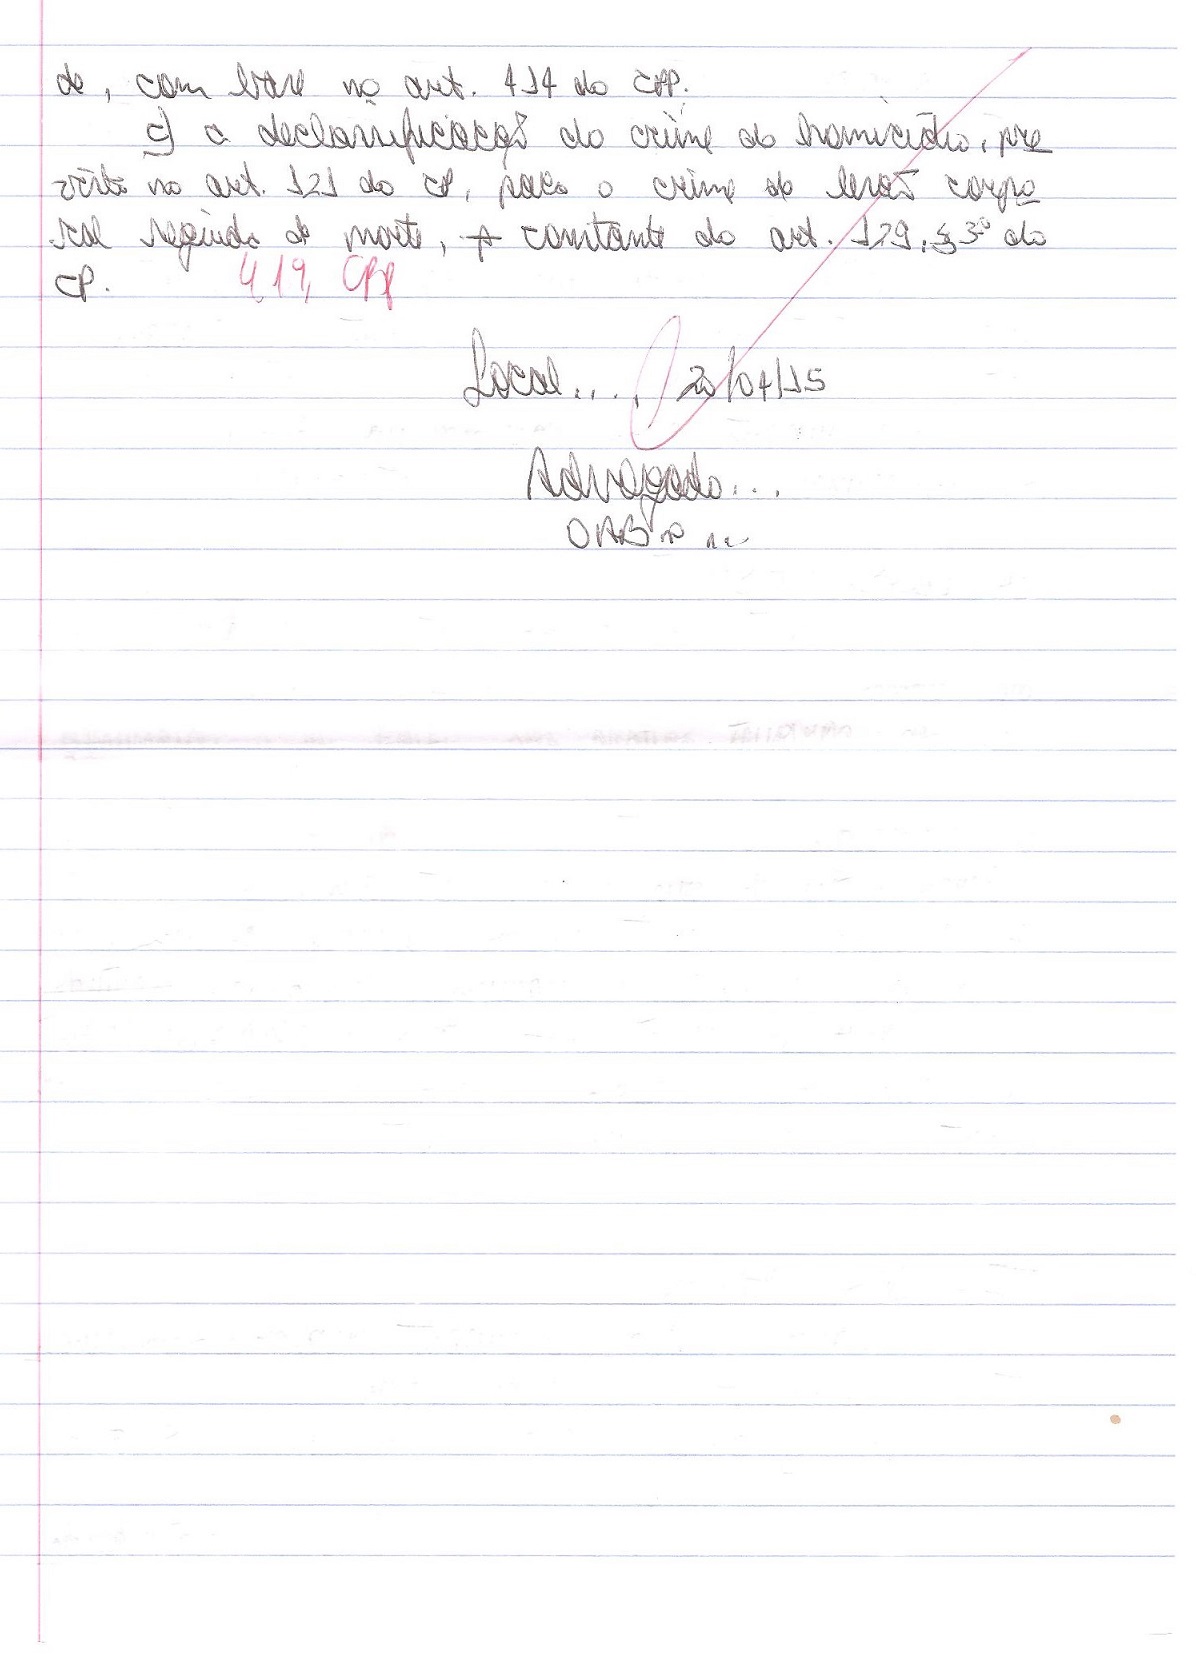 de, com base no art. 414 do CPP.
c) a desclassificação do crime de homicídio, pre
visto no art. 121 do CP, para o crime de lesão corpo
ral seguida de morte, constante do art. 129, § 3º do
CP. 419, CPP
Local...., 20/04/15
Advogado...
OAB nº ...